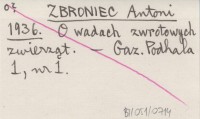 ZBRONIEC Antoni
1936. O wadach zwrotowych
zwierząt. – Gaz. Podhala
1, nr 1.